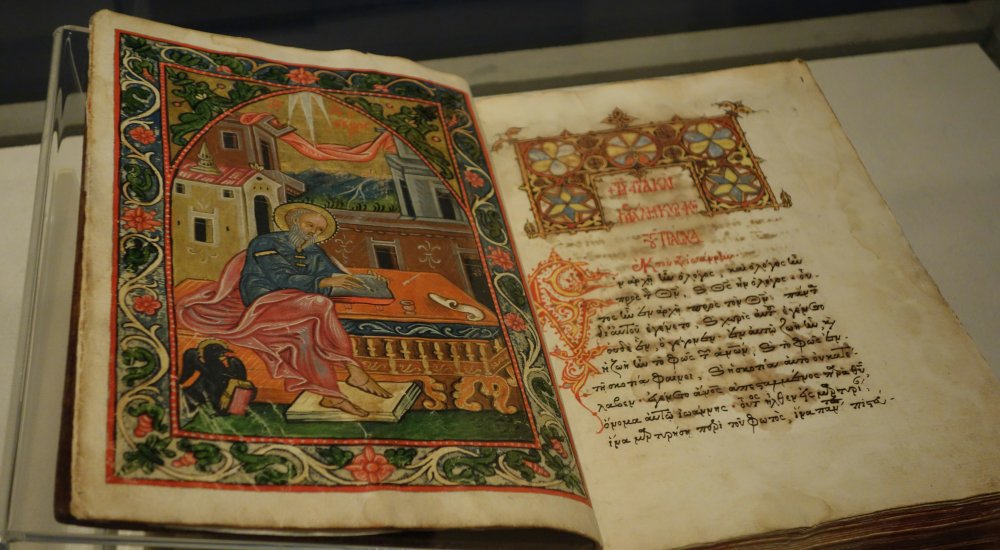 ΠΑΣΧΑ
Κατὰ Ἰωάννην
ν ἀρχῇ ἦν ὁ λόγος, καὶ ὁ λόγος ἦν
πρὸς τ Θν, ϗ Θς ἦν ὁ λόγος. οὗ
τος ἦν ἐν ἀρχῇ πρὸς τὸν Θν. πάντ
δι αὐτοῦ ἐγένετο, ϗ χωρὶς αὐτ ἐγένετο
οὐδὲ ἓν, ὃ γέγονεν. ἐν αὐτῷ ζωὴ ἦν, ϗ
ἡ ζωὴ ἦν τὸ φῶς τ ἀνων. ϗ τὸ φῶς ἐν
τῇ σκοτίᾳ φαίνει, ϗ ἡ σκοτία αὐτὸ οὐ κατέ
λαβεν. ἐγένετο ἄνος ἀπεσταλμένος παρὰ Θυ,
ὄνομα αὐτῷ ἰωάννης. οὗτος ἦλθεν εἰς μαρτυρί,
ἵνα μαρτυρήσῃ περὶ τοῦ φωτὸς, ἵνα παν πιστευ